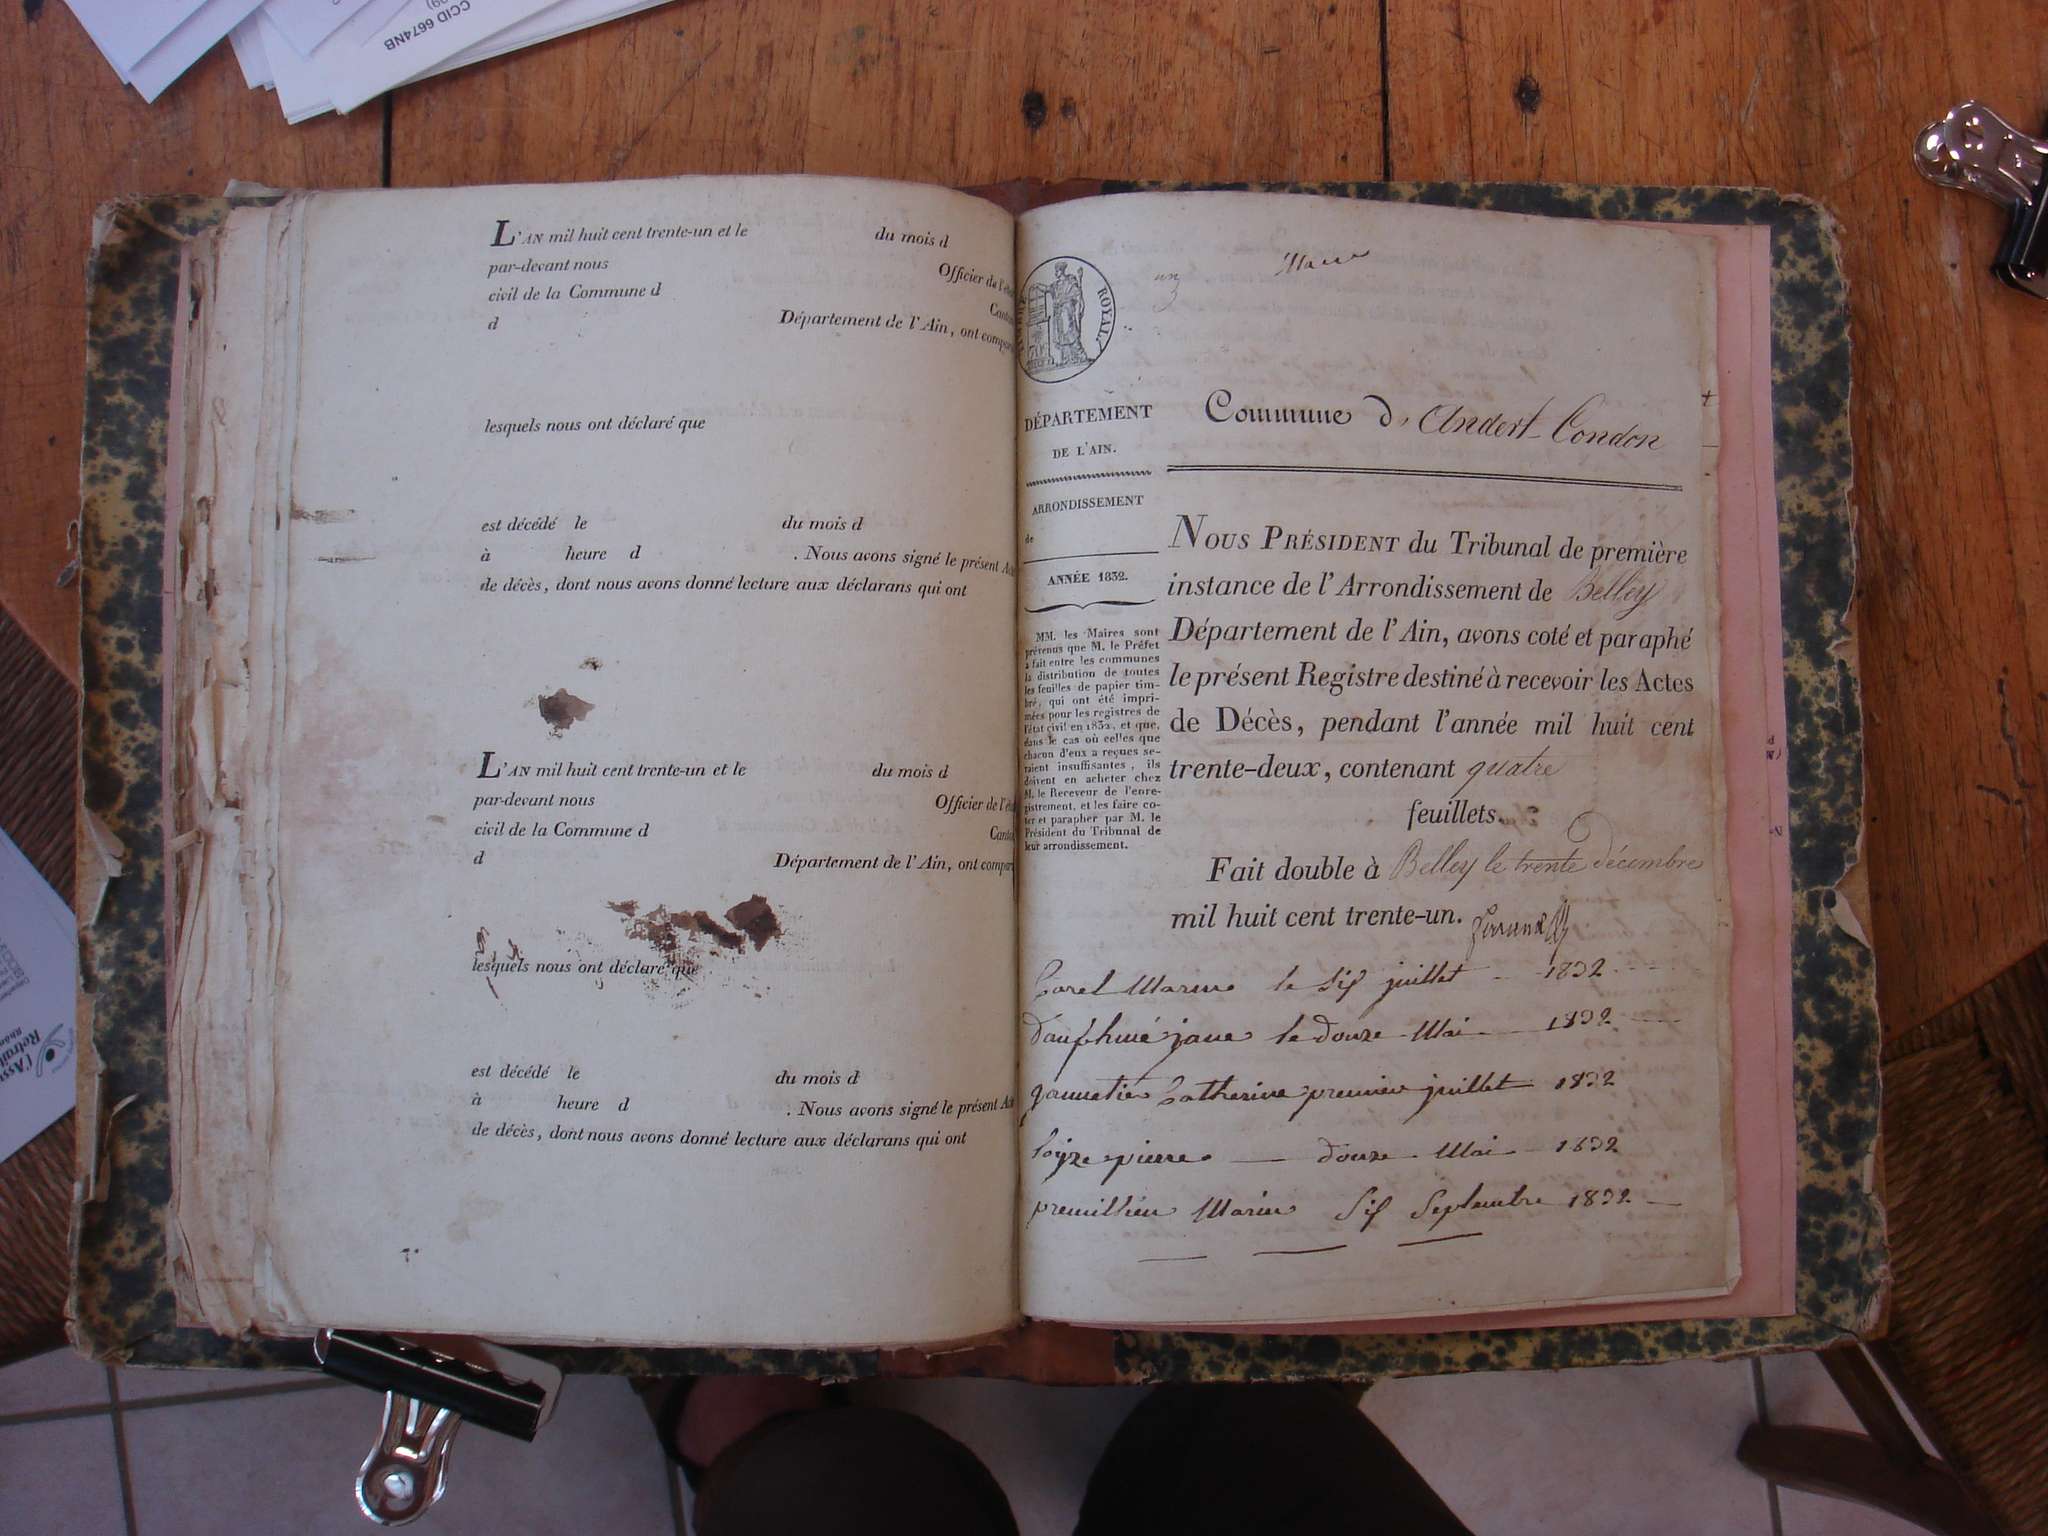 CCID 6674NB
L'AN mil huit cent trente-un et le du mois d
par-devant nous Officier de l'éta
civil de la Commune d Canto
d Département de l'Ain, ont compar
lesquels nous ont déclaré que
est décédé le du mois d
à heure d . Nous avons signé le présent Act
de décès, dont nous avons donné lecture aux déclarans qui ont
L'AN mil huit cent trente-un et le du mois d
par-devant nous Officier de l'éta
civil de la Commune d Canto
d Département de l'Ain, ont compar
lesquels nous ont déclaré que
est décédé le du mois d
à heure d . Nous avons signé le présent Act
de décès, dont nous avons donné lecture aux déclarans qui ont
un
ROYAL.
DÉPARTEMENT
DE L'AIN.
ARRONDISSEMENT
de
ANNÉE 1832.
MM. les Maires sont
prévenus que M. le Préfet
a fait entre les communes
la distribution de toutes
les feuilles de papier tim-
bré, qui ont été impri-
mées pour les registres de
l'état civil en 1832, et que,
dans le cas où celles que
chacun d'eux a reçues se-
raient insuffisantes, ils
doivent en acheter chez
M. le Receveur de l'enre-
gistrement, et les faire co-
ter et parapher par M. le
Président du Tribunal de
leur arrondissement.
Commune d'Andert-Condon
NOUS PRÉSIDENT du Tribunal de première
instance de l'Arrondissement de Belley
Département de l'Ain, avons coté et paraphé
le présent Registre destiné à recevoir les Actes
de Décès, pendant l'année mil huit cent
trente-deux, contenant quatre
feuillets.
Fait double à Belley le trente décembre
mil huit cent trente-un.
Carel Marie le six juillet 1832
le douze Mai 1832
Catherine premier juillet 1832
pierre douze Mai 1832
premillieu Marie Six Septembre 1832